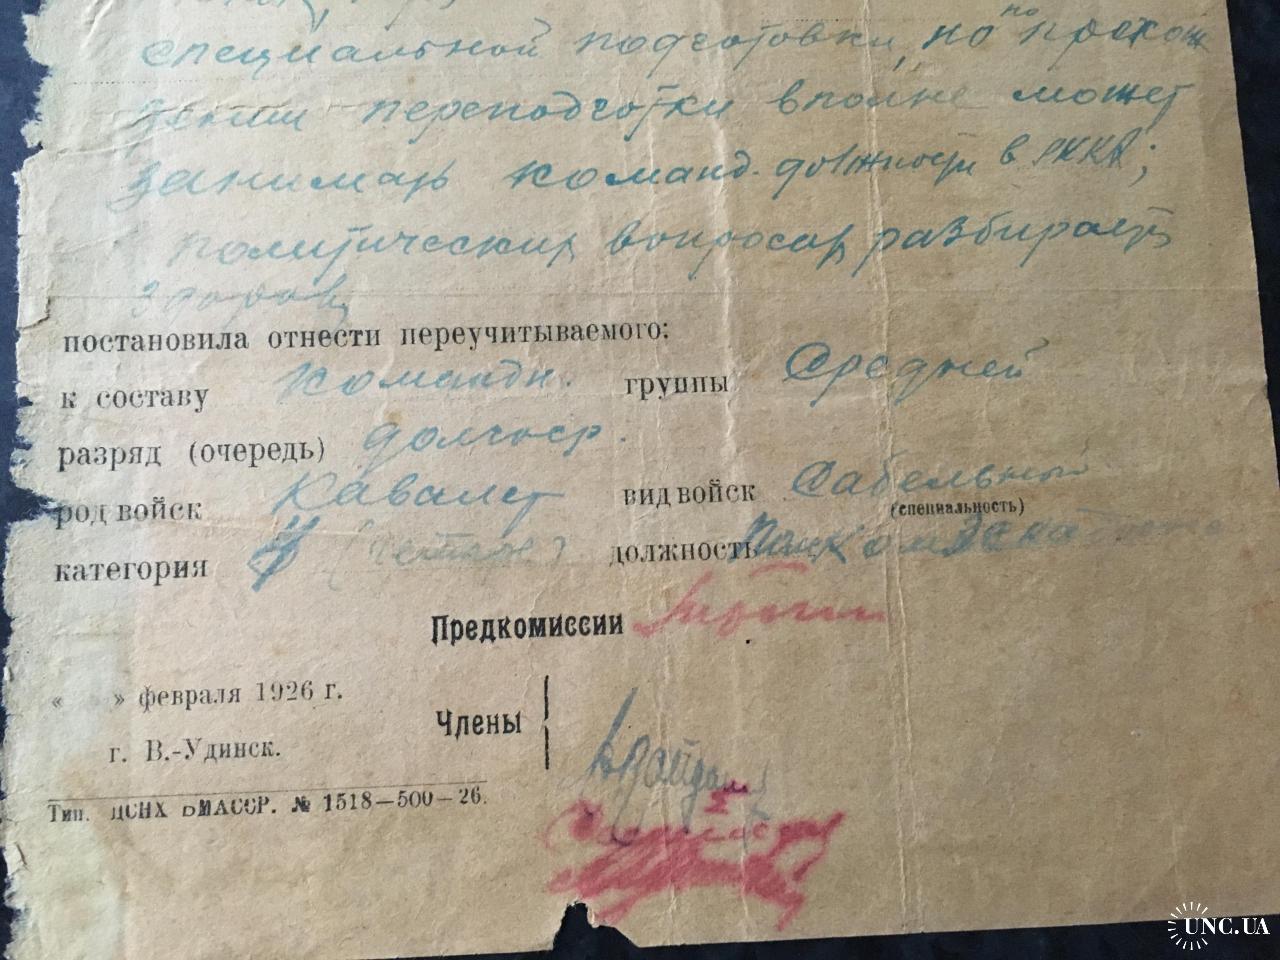 специальной подготовки, но по прохож
дении переподготовки вполне может
занимать команд. должности в РККА;
политических вопросах разбирается
здоров
постановила отнести переучитываемого:
к составу Командн. группы Средней
разряд (очередь) долгоср.
род войск Кавалер вид войск Сабельный
(специальность)
категория должность Помкомэскадрона
Предкомиссии
« » февраля 1926 г.
Члены
г. В.-Удинск.
Тип. ЦСНХ БМАССР. № 1518—500—26.
UNC.UA